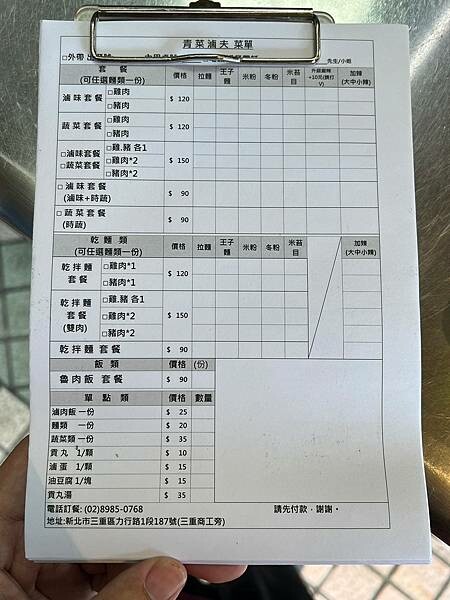 青菜滷夫 菜單
□外帶
先生/小姐
套 餐
(可任選麵類一份)
價格 拉麵 王子麵 米粉 冬粉 米苔目 加辣(大中小辣)
滷味套餐 □雞肉 $ 120
□豬肉
蔬菜套餐 □雞肉 $ 120
□豬肉
□滷味套餐 □雞.豬 各1 $ 150
□蔬菜套餐 □雞肉*2
□豬肉*2
□滷味套餐 $ 90
(滷味+時蔬)
□蔬菜套餐 $ 90
(時蔬)
乾 麵 類
(可任選麵類一份)
價格 拉麵 王子麵 米粉 冬粉 米苔目 加辣(大中小辣)
乾拌麵套餐 □雞肉*1 $ 120
□豬肉*1
乾拌麵套餐(雙肉) □雞.豬 各1 $ 150
□雞肉*2
□豬肉*2
乾拌麵 套餐 $ 90
飯 類 價格 (份)
魯肉飯 套餐 $ 90
單 點 類 價格 數量
滷肉飯 一份 $ 25
麵類 一份 $ 20
蔬菜類 一份 $ 35
貢丸 1/顆 $ 10
滷蛋 1/顆 $ 15
油豆腐 1/塊 $ 15
貢丸湯 $ 35
電話訂餐: (02)8985-0768 請先付款，謝謝。
地址:新北市三重區力行路1段187號(三重商工旁)